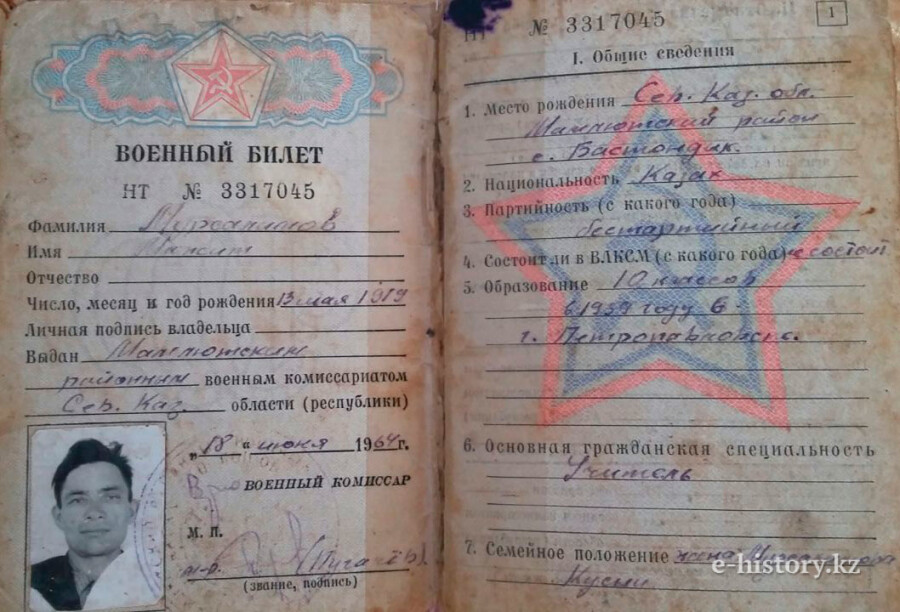 ВОЕННЫЙ БИЛЕТ
НТ № 3317045
Фамилия
Имя
Отчество
Число, месяц и год рождения 13 мая 1919
Личная подпись владельца
Выдан Мамлютским
районным военным комиссариатом
Сев. Каз. области (республики)
„18“ июня 1964 г.
Врио ВОЕННЫЙ КОМИССАР
М. П.
м-р. (Пугачёв)
(звание, подпись)
НТ № 3317045
1
I. Общие сведения
1. Место рождения Сев. Каз. обл.
Мамлютский район
с. Бастондик.
2. Национальность Казак
3. Партийность (с какого года)
беспартийный
4. Состоит ли в ВЛКСМ (с какого года) не состоит
5. Образование 10 классов
в 1939 году в
г. Петропавловске.
6. Основная гражданская специальность
Учитель
7. Семейное положение жена
e-history.kz